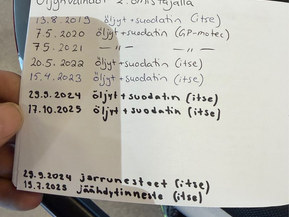 Öljynvaihdot 2. omistajalla
13.8.2019 öljyt+suodatin (itse)
7.5.2020 öljyt+suodatin (GP-motec)
7.5.2021 —〃— —〃—
20.5.2022 öljyt+suodatin (itse)
15.4.2023 öljyt+suodatin (itse)
29.9.2024 öljyt+suodatin (itse)
17.10.2025 öljyt+suodatin (itse)
29.9.2024 jarrunesteet (itse)
19.7.2025 jäähdytinneste (itse)